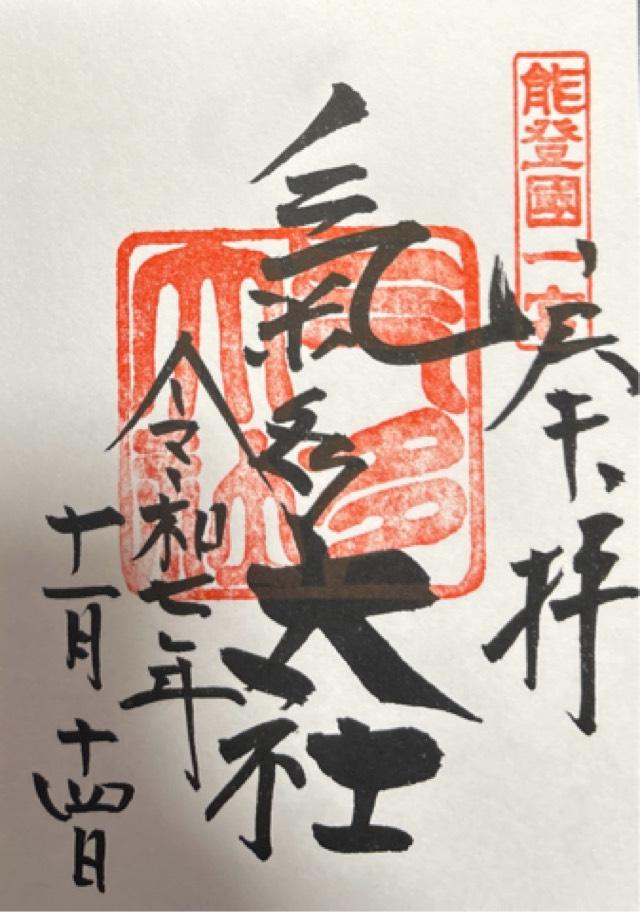 能登國一宮
奉拝
氣多大社
氣多大社
令和七年
十一月十四日